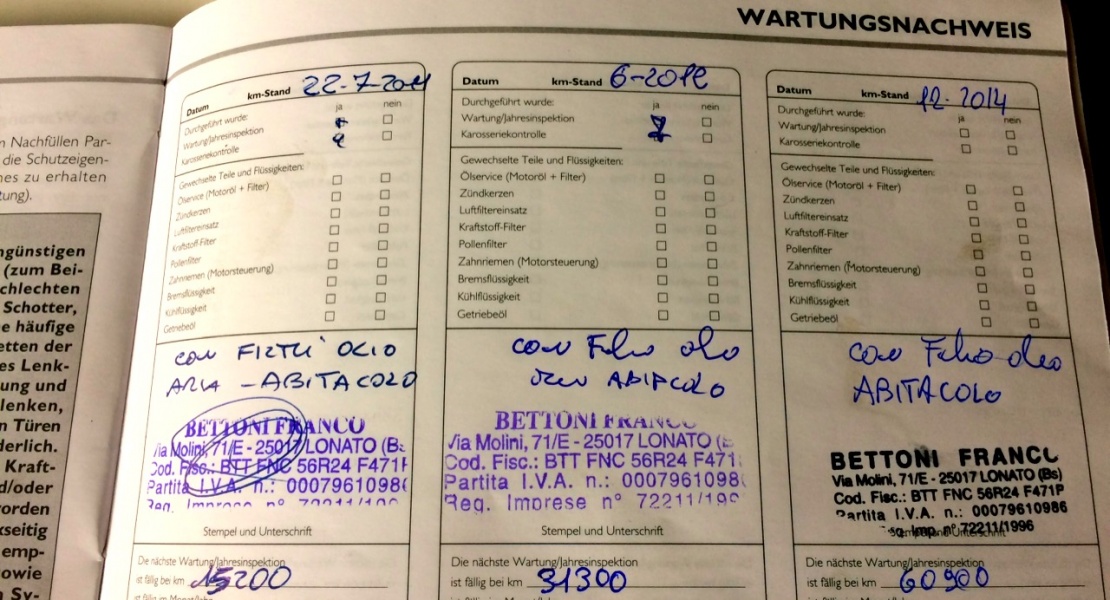 WARTUNGSNACHWEIS
n Nachfüllen Par-
die Schutzeigen-
nes zu erhalten
tung).
ngünstigen
(zum Bei-
chlechten
Schotter,
e häufige
etten der
es Lenk-
ung und
lenken,
n Türen
derlich.
Kraft-
d/oder
vorden
kseitig
emp-
owie
n Sy-
Datum km-Stand 22-7-2011
Durchgeführt wurde: ja nein
Wartung/Jahresinspektion
Karosseriekontrolle
Gewechselte Teile und Flüssigkeiten:
Ölservice (Motoröl + Filter)
Zündkerzen
Luftfiltereinsatz
Kraftstoff-Filter
Pollenfilter
Zahnriemen (Motorsteuerung)
Bremsflüssigkeit
Kühlflüssigkeit
Getriebeöl
con FILTRI OLIO
ARIA - ABITACOLO
BETTONI FRANCO
Via Molini, 71/E - 25017 LONATO (Bs
Cod. Fisc.: BTT FNC 56R24 F471P
Partita I.V.A. n.: 0007961098
Reg. Imprese n° 72211/199
Stempel und Unterschrift
Die nächste Wartung/Jahresinspektion
ist fällig bei km 15200
Datum km-Stand 6-2012
Durchgeführt wurde: ja nein
Wartung/Jahresinspektion
Karosseriekontrolle
Gewechselte Teile und Flüssigkeiten:
Ölservice (Motoröl + Filter)
Zündkerzen
Luftfiltereinsatz
Kraftstoff-Filter
Pollenfilter
Zahnriemen (Motorsteuerung)
Bremsflüssigkeit
Kühlflüssigkeit
Getriebeöl
con Filtro olio
ABITACOLO
BETTONI FRANCO
Via Molini, 71/E - 25017 LONATO (
Cod. Fisc.: BTT FNC 56R24 F471
Partita I.V.A. n.: 0007961098
Reg. Imprese n° 72211/199
Stempel und Unterschrift
Die nächste Wartung/Jahresinspektion
ist fällig bei km 31300
Datum km-Stand 12-2014
Durchgeführt wurde: ja nein
Wartung/Jahresinspektion
Karosseriekontrolle
Gewechselte Teile und Flüssigkeiten:
Ölservice (Motoröl + Filter)
Zündkerzen
Luftfiltereinsatz
Kraftstoff-Filter
Pollenfilter
Zahnriemen (Motorsteuerung)
Bremsflüssigkeit
Kühlflüssigkeit
Getriebeöl
con Filtro olio
ABITACOLO
BETTONI FRANCO
Via Molini, 71/E - 25017 LONATO (Bs)
Cod. Fisc.: BTT FNC 56R24 F471P
Partita I.V.A. n.: 00079610986
Imp. n° 72211/1996
Die nächste Wartung/Jahresinspektion
ist fällig bei km 60900